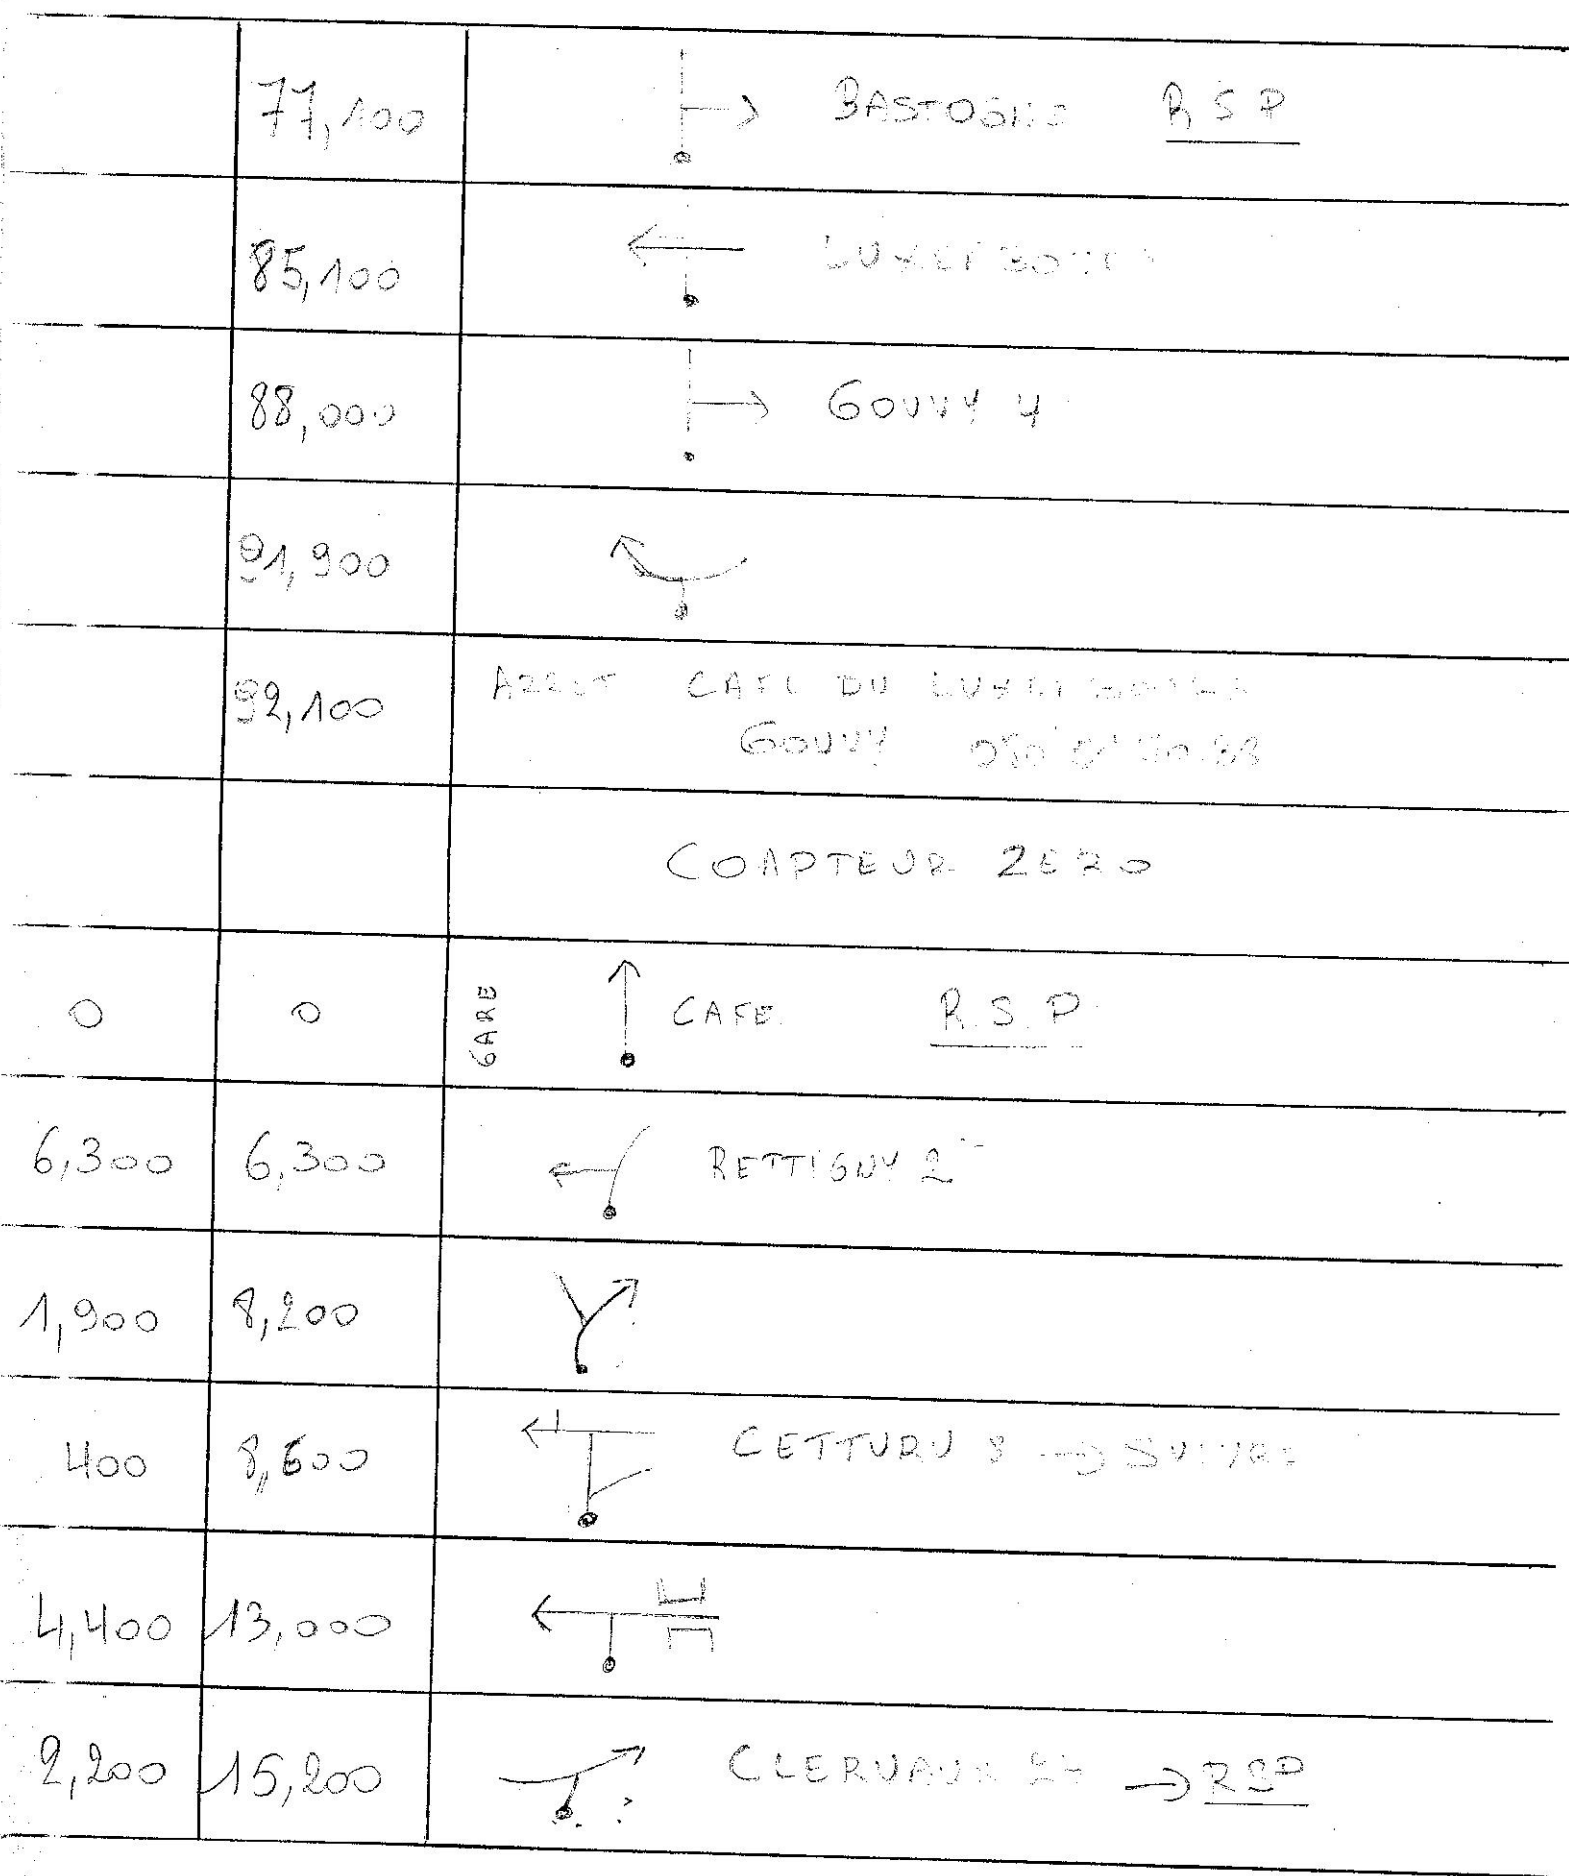 77,100 BASTOGNE RSP
85,100
88,000 GOUVY 4
91,900
92,100 CAFE DU
GOUVY
COAPTEUR ZERO
0 0 GARE CAFE R.S.P
6,300 6,300 RETTIGNY 2
1,900 8,200
400 8,600 CETTURU 8 → SUIVRE
4,400 13,000
2,200 15,200 CLERVAUX → RSP